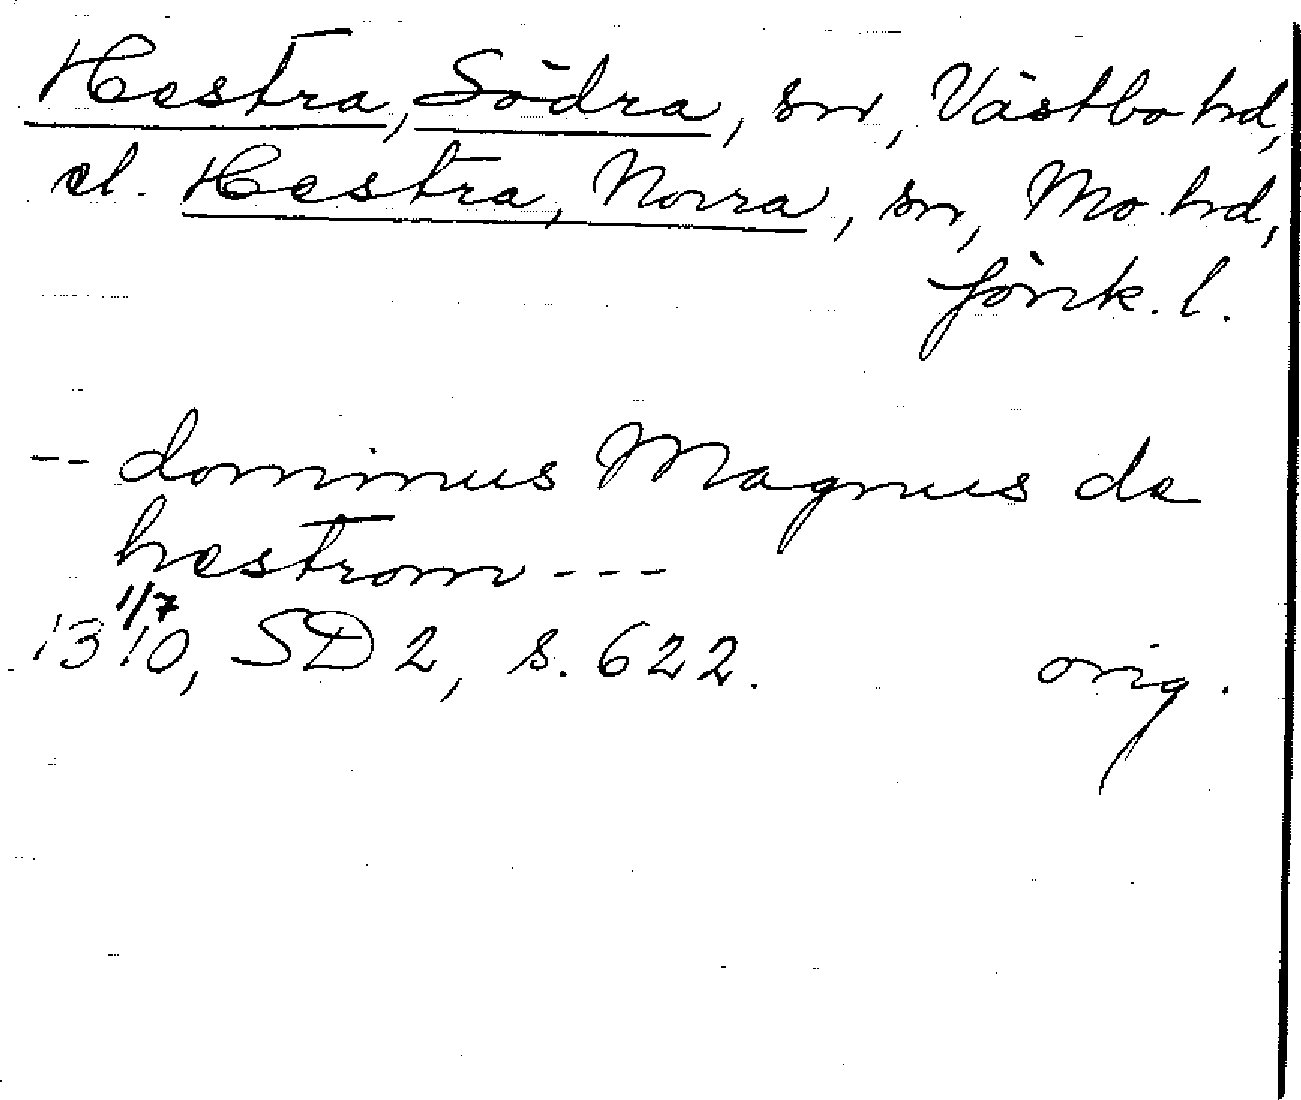 Hestra, Södra, sn, Västbo hd,
el. Hestra, Norra, sn, Mo hd,
Jönk. l.
-- dominus Magnus de
hestrom ---
1/7
1310, SD 2, s. 622. orig.